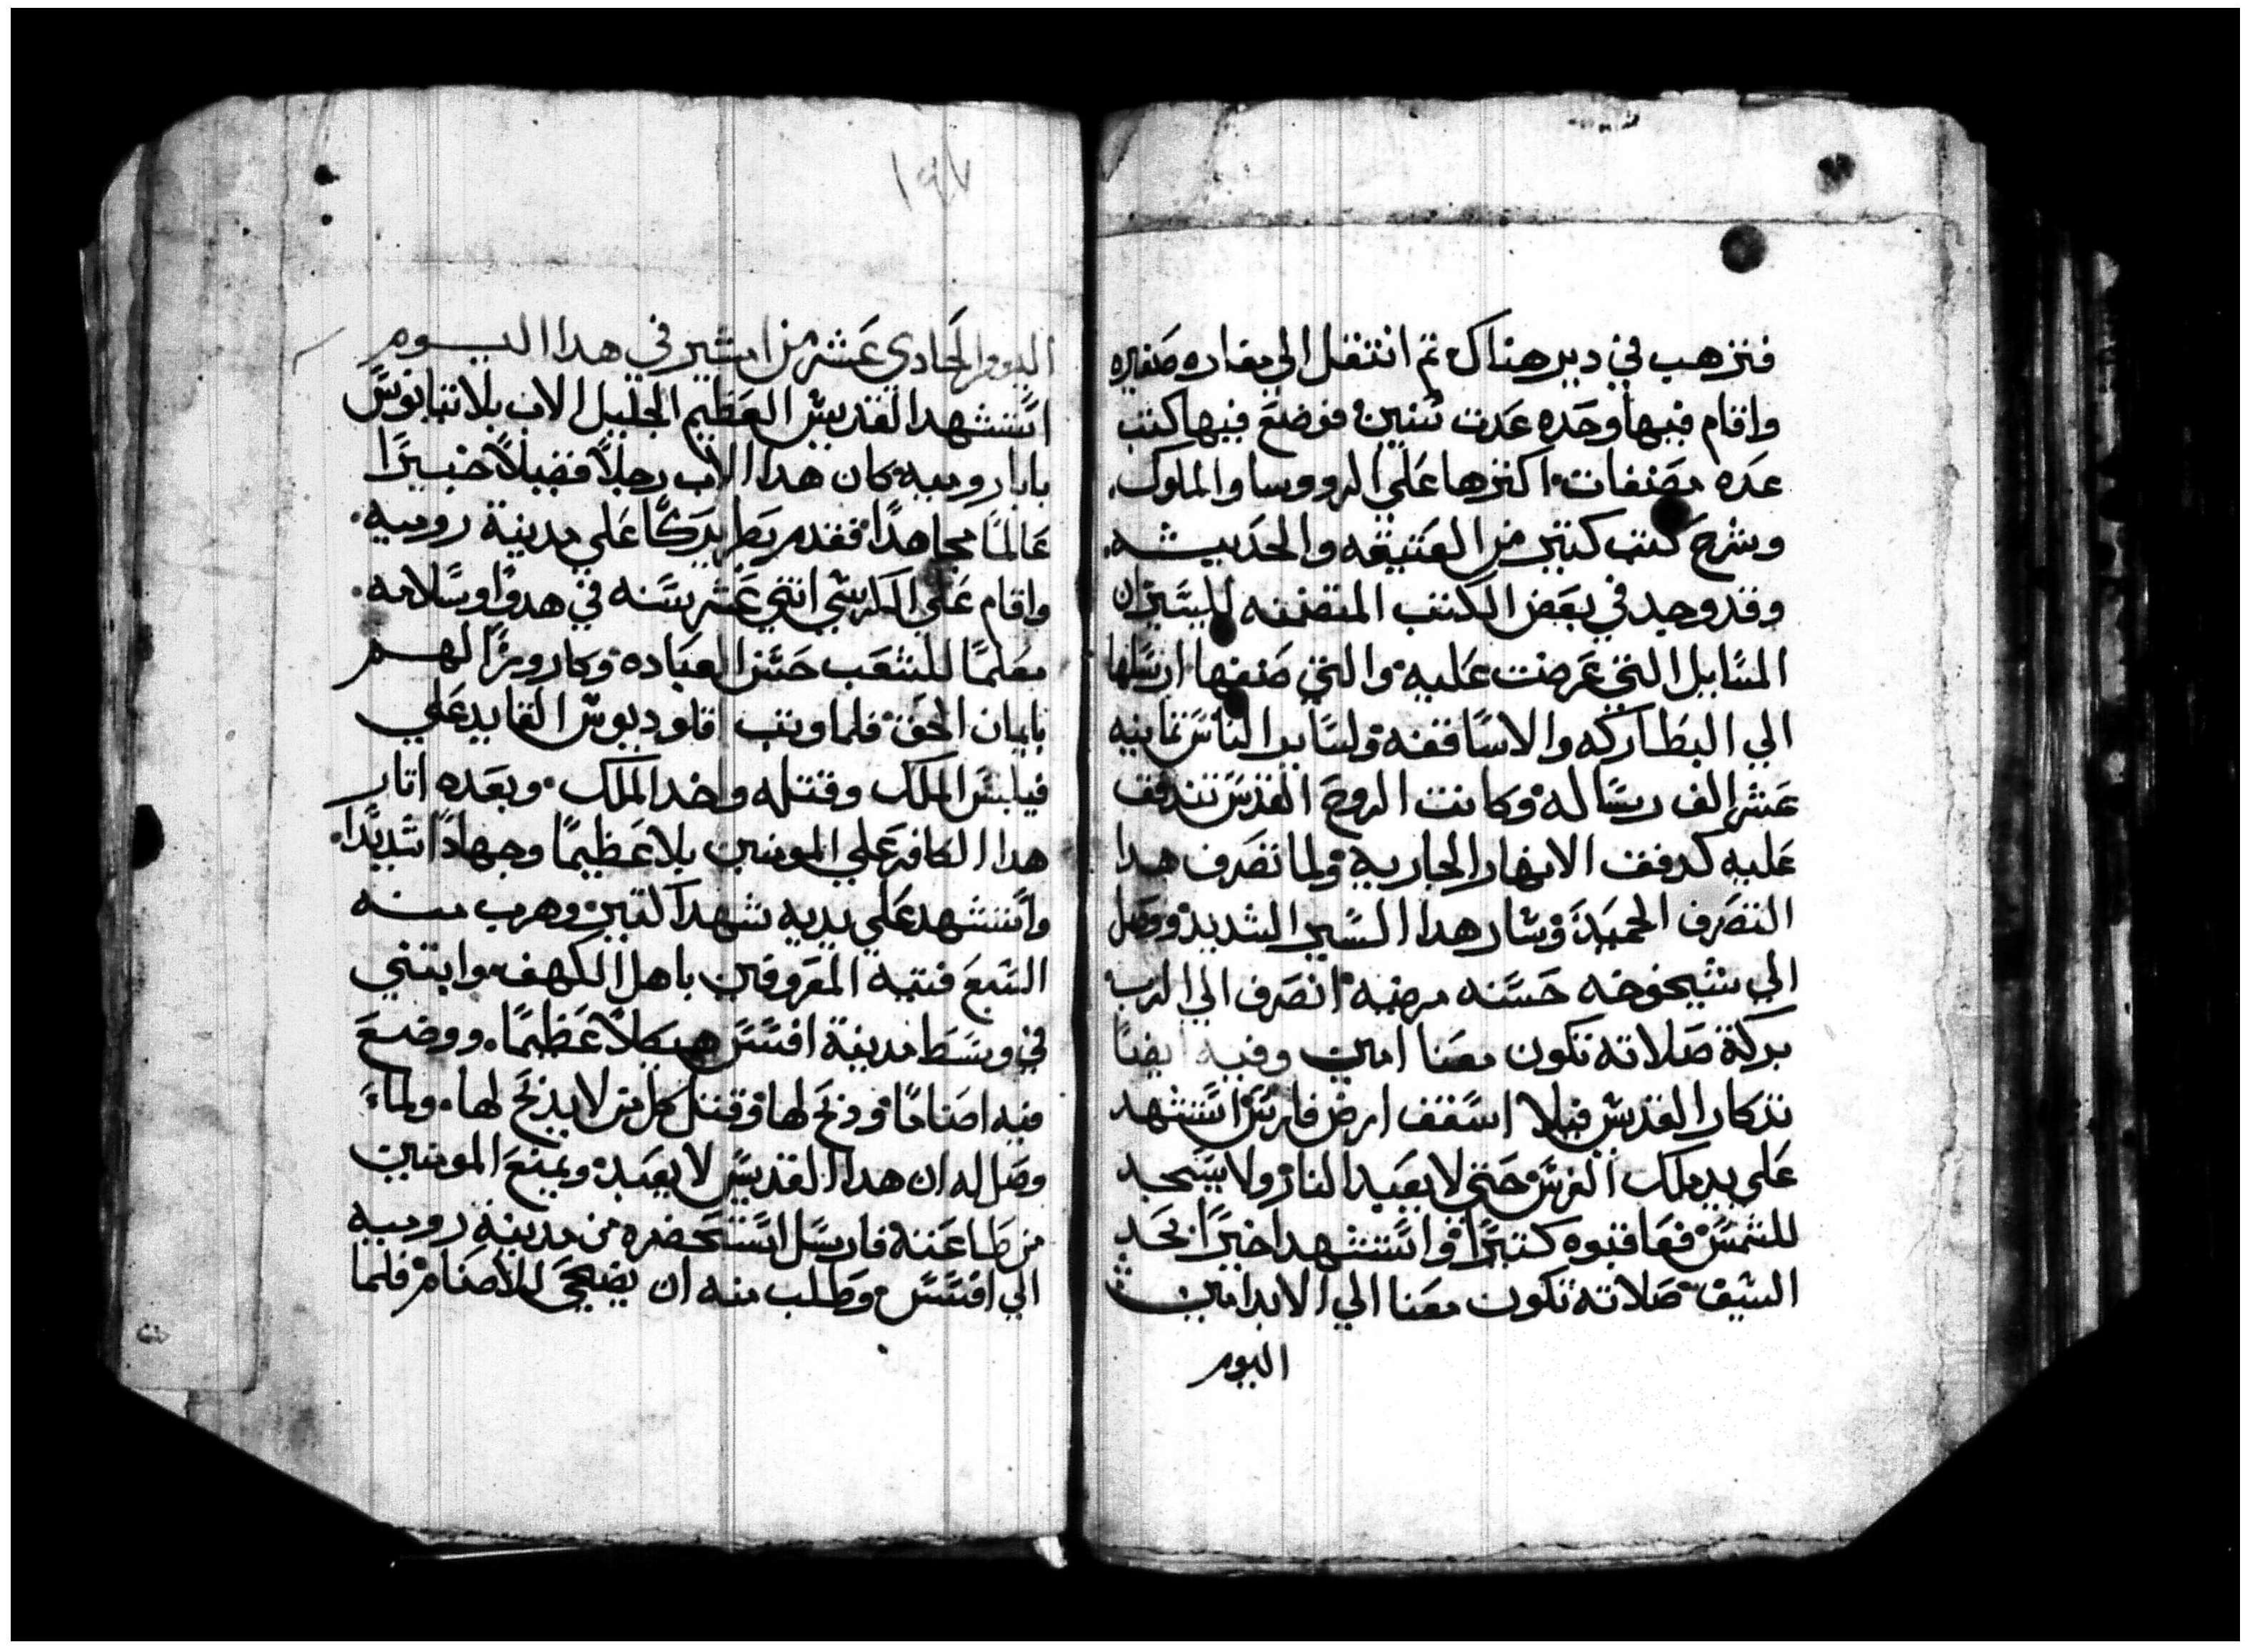 فترهب في دير هناك تم انتقل الي مغاره صغيره
واقام فيها وحده عدت سنين فوضع فيها كتب
عده مصنفات اكترها علي الرووسا والملوك
وشرح كتب كتير من العتيقه والحديثه
وقد وجد في بعض الكتب المتضمنه للسير ان
المسايل التي عرضت عليه والتي صنفها ارسلها
الي البطاركه والاساقفه ولساير الناس تمانيه
عشر الف رساله وكانت الروح القدس تتدفق
عليه كدفق الانهار الجاريه ولما تصرف هدا
التصرف الحميد وسار هدا السير الشديد ووصل
الي شيخوخه حسنه مرضيه انصرف الي الرب
بركة صلاته تكون معنا امين وفيه ايضا
تدكار القديس فيلا اسقف ارض فارس استشهد
علي يد ملك الفرس حتي لا يعبد النار ولا يسجد
للشمس فعاقبوه كتيرا واستشهد اخيرا بحد
السيف صلاته تكون معنا الي الابد امين
اليوم
١٩٧
اليوم الحادي عشر من امشير في هدا اليوم
استشهد القديس العظيم الجليل الاب بلاتيانوس
بابا روميه كان هدا الاب رجلا فضيلا خبيرا
عالما مجاهدا فقدم بطريركا علي مدينة روميه
واقام علي الكرسي اتني عشر سنه في هدوا وسلامه
معلما للشعب حسن العباده وكارورا لهم
بايمان الحق فلما وتب داوديوس القايد علي
فيلبس الملك وقتله واخد الملك وبعده اتار
هدا الكافر علي المومنين بلا عظيما وجهادا شديدا
واستشهد علي يديه شهدا كتير وهرب منه
السبع فتيه المعروفين باهل الكهف وابتني
في وسط مدينة افسس هيكلا عظيما ووضع
فيه اصناما ودبح لها وقتل كل من لا يدبح لها ولما
وصل له ان هدا القديس لا يعبد ويمنع المومنين
من طاعته فارسل استحضره من مدينة روميه
الي افسس وطلب منه ان يضحي للاصنام فلما